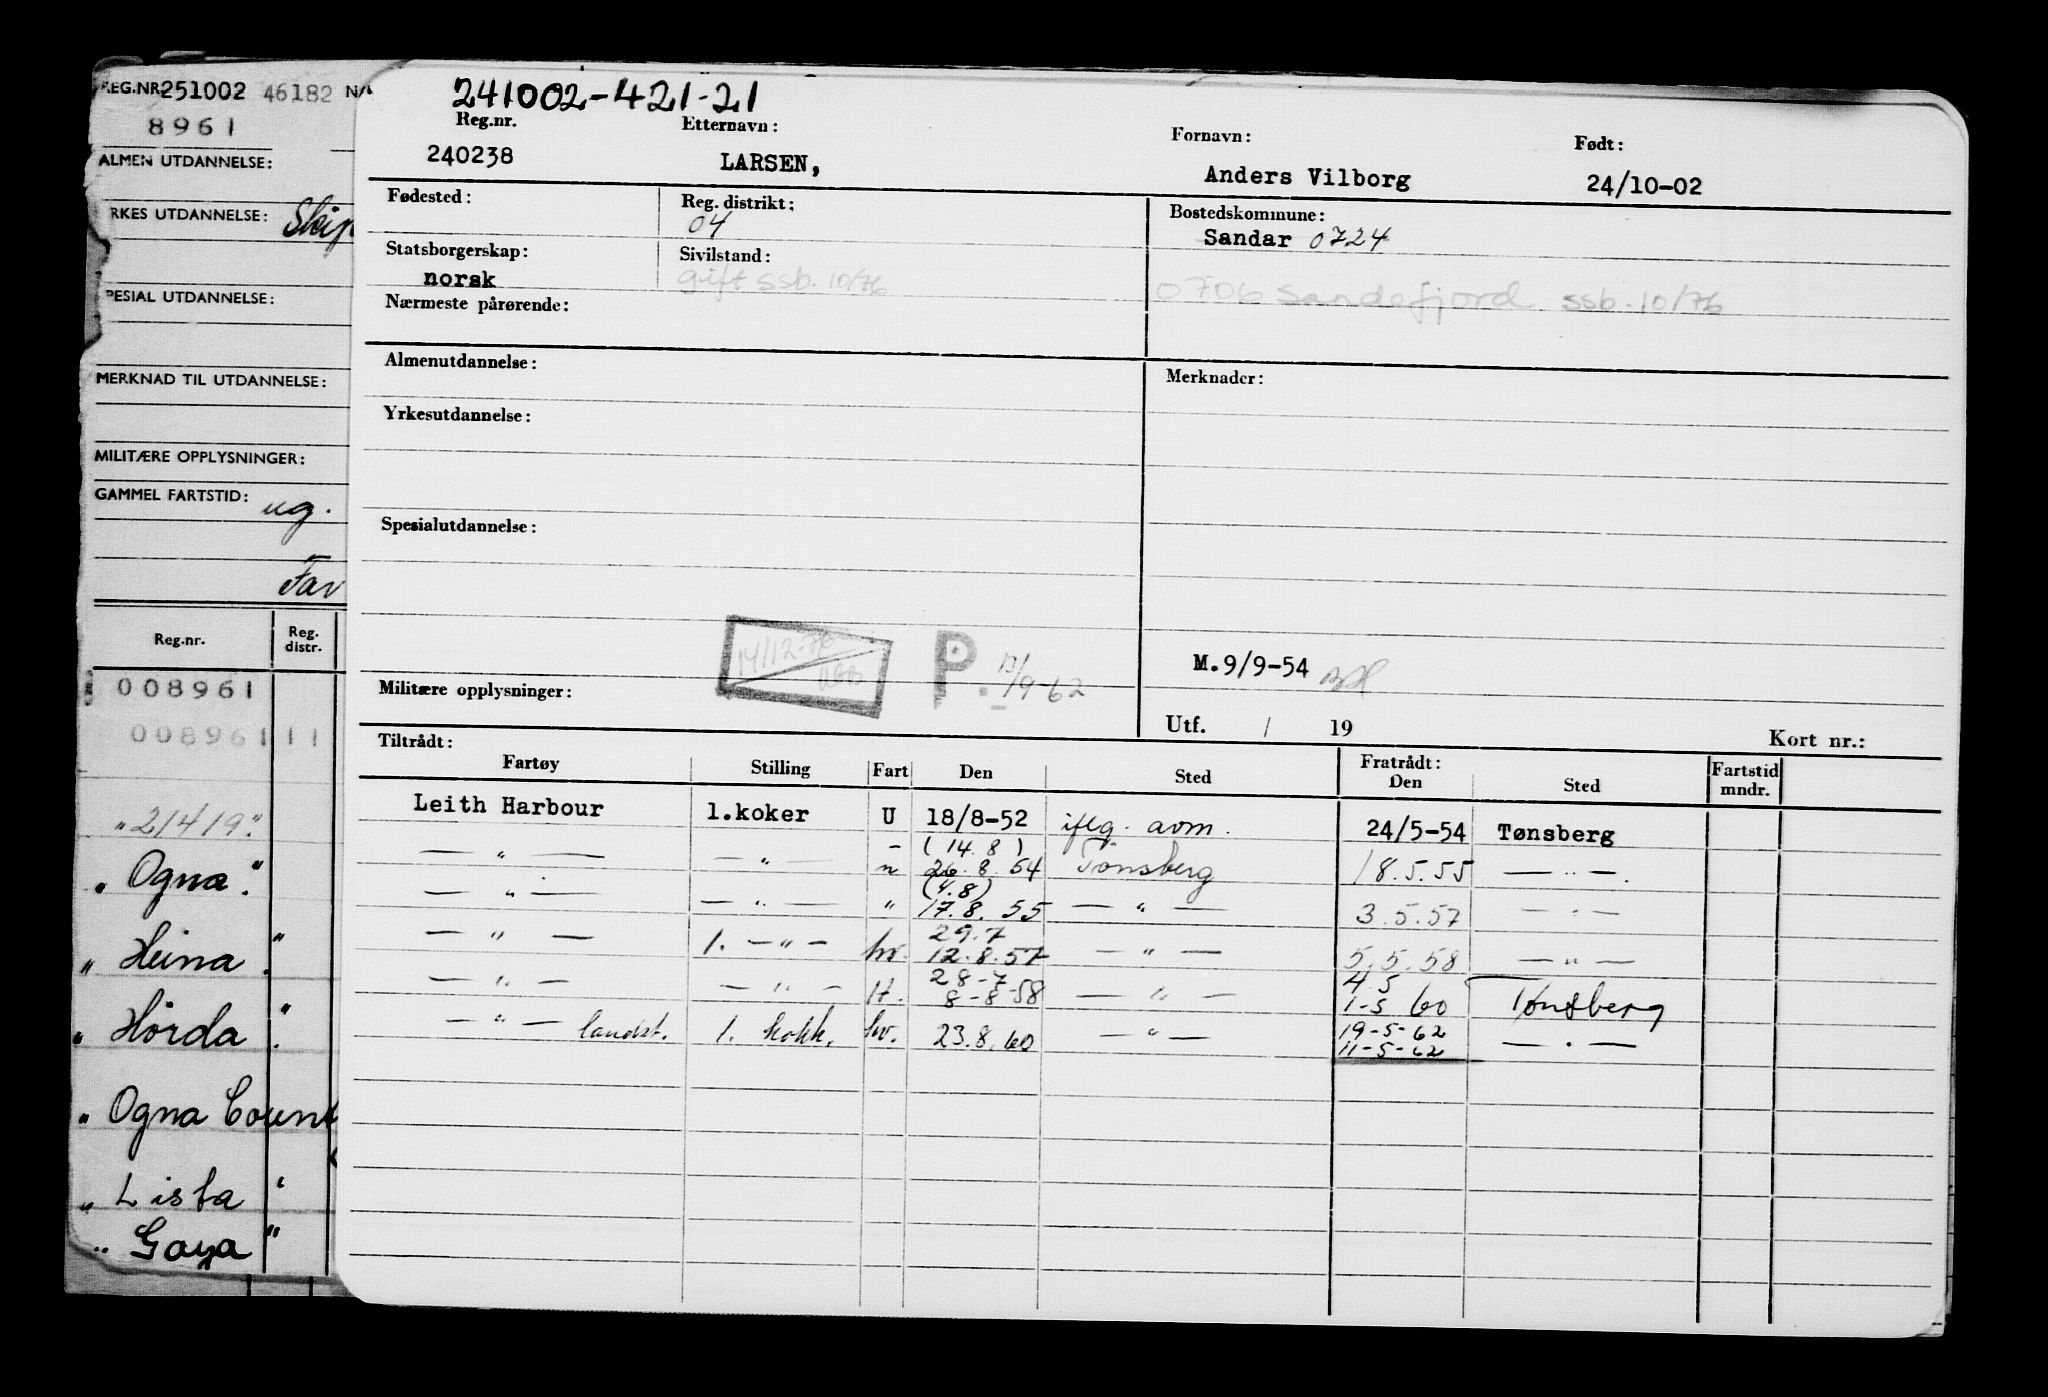 REG.NR. 251002 46182 NA
8961
ALMEN UTDANNELSE:
RKES UTDANNELSE:
PESIAL UTDANNELSE:
MERKNAD TIL UTDANNELSE:
MILITÆRE OPPLYSNINGER:
GAMMEL FARTSTID: ug.
Far
Reg.nr. Reg. distr.
008961
008961 11
"21419."
"Ogna."
"Heina."
"Horda."
"Ogna Count
"Lista"
"Gaya"
241002-421-21
Reg.nr. Etternavn: Fornavn: Født:
240238 LARSEN, Anders Vilborg 24/10-02
Fødested: Reg. distrikt: Bostedskommune:
04 Sandar 0724
Statsborgerskap: Sivilstand:
norsk gift ssb. 10/76 0706 Sandefjord ssb. 10/76
Nærmeste pårørende:
Almenutdannelse: Merknader:
Yrkesutdannelse:
Spesialutdannelse:
14/12-76 P. 13/9-62 M.9/9-54
Militære opplysninger:
Utf. / 19 Kort nr.:
Tiltrådt: Fratrådt:
Fartøy Stilling Fart Den Sted Den Sted Fartstid mndr.
Leith Harbour 1.koker U 18/8-52 iflg. avm. 24/5-54 Tønsberg
— " — — " — - (14.8)
" 26.8.54 Tønsberg 18.5.55 — " —.
— " — — " — " (4.8)
17.8.55 — " — 3.5.57 — " —
— " — 1. — " — hv. 29.7
12.8.57 — " — 5.5.58 — " —
— " — — " — 28-7
8-8-58 — " — 4 5
1-5 60 Tønsberg
— " — landst. 1. kokk. hv. 23.8.60 — " — 19-5-62
11-5-62 — " —